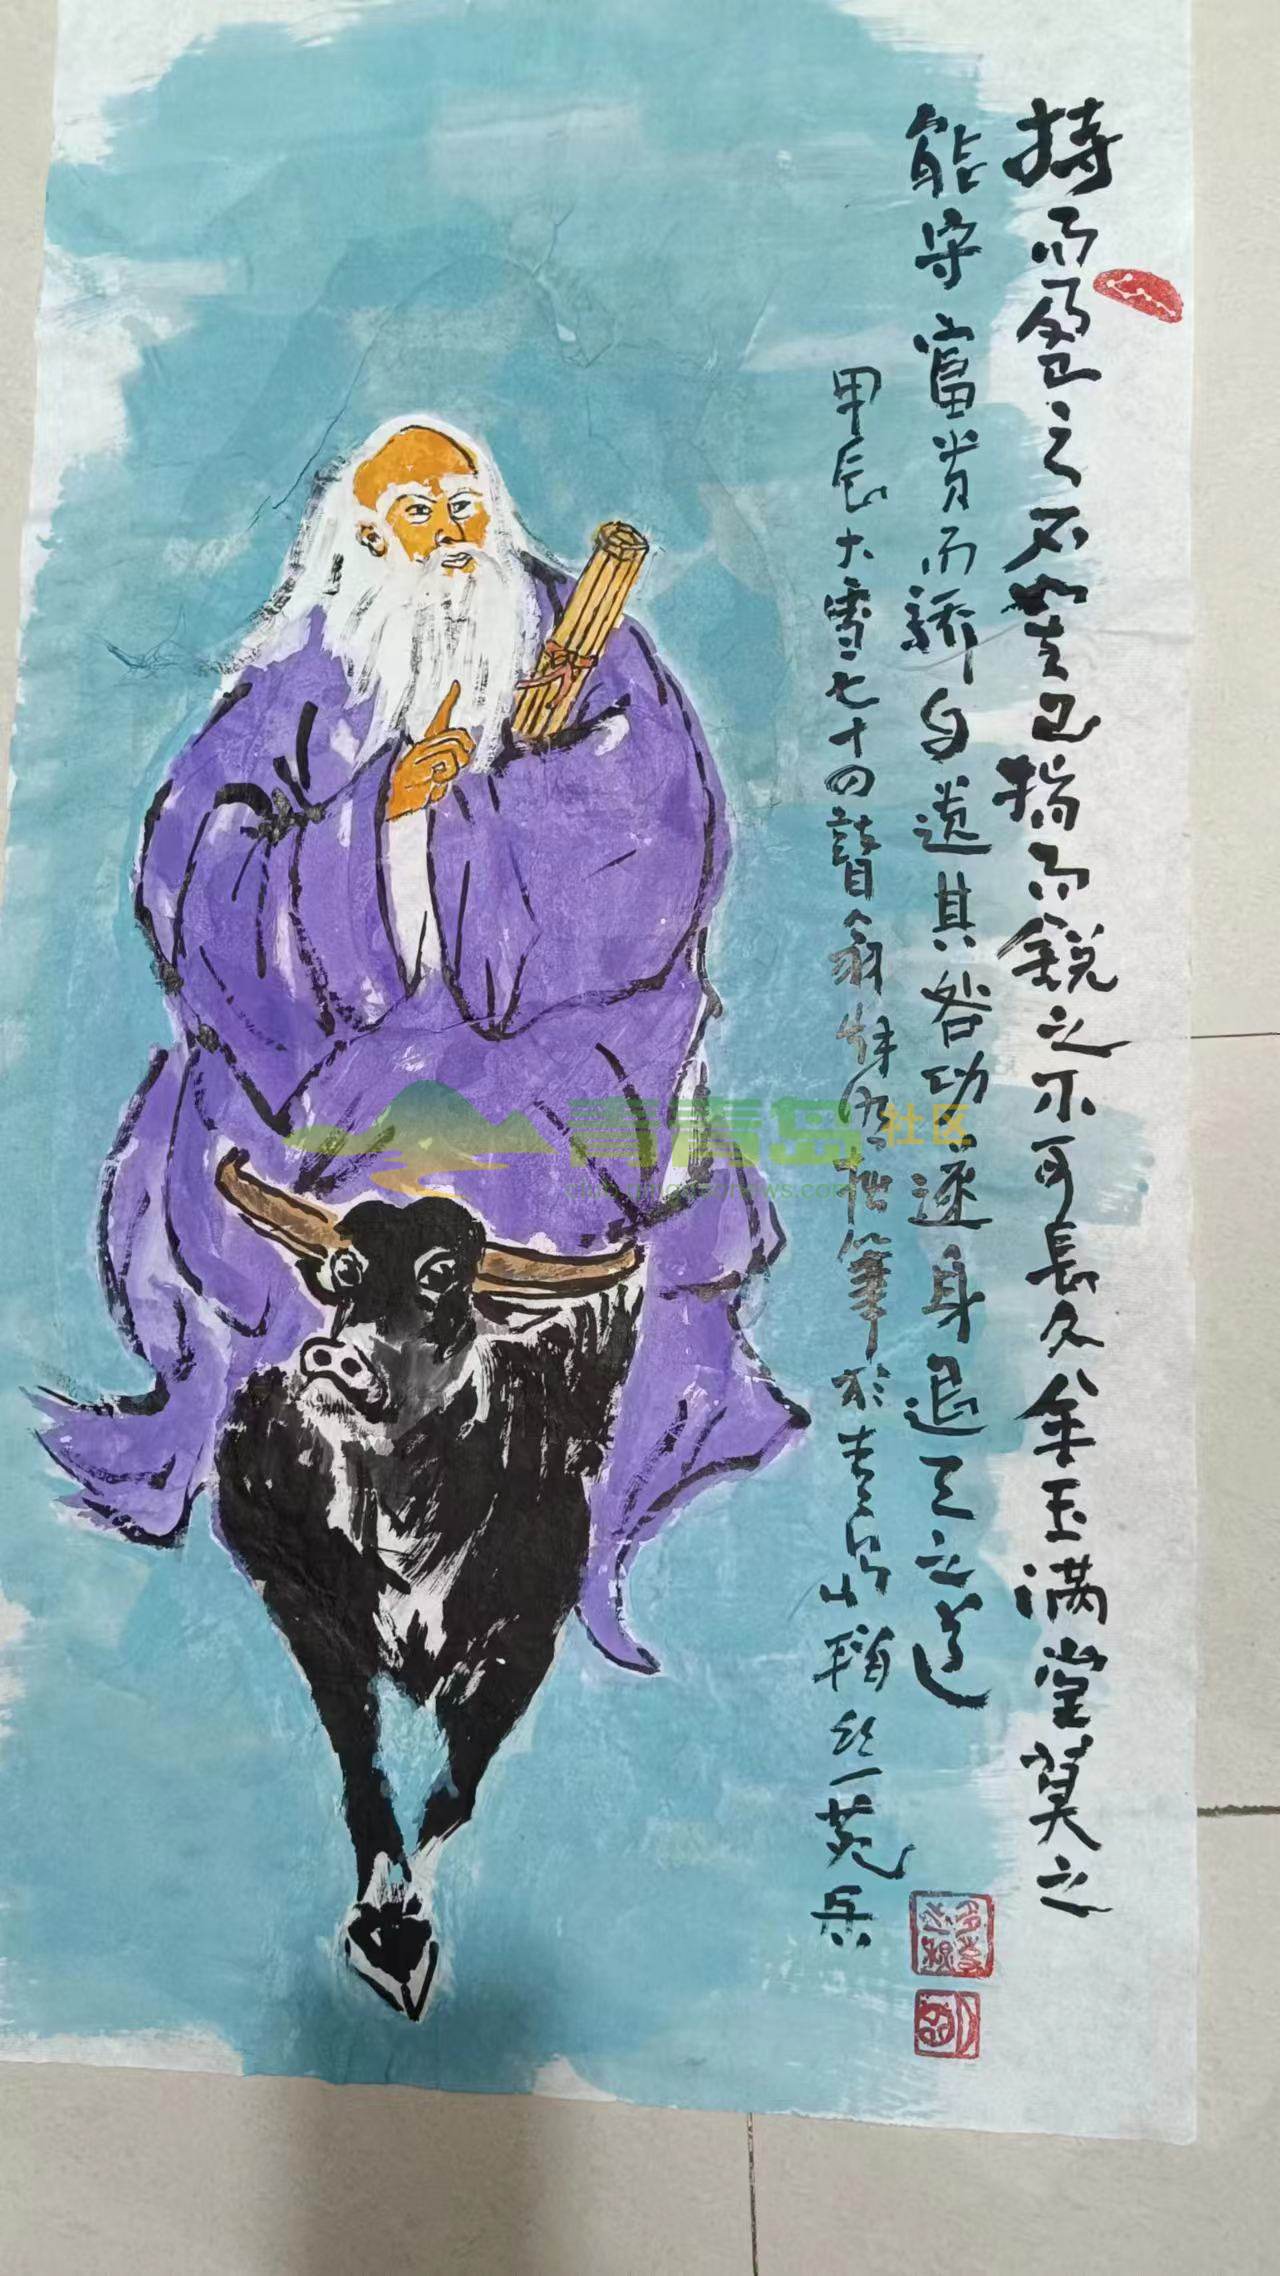 持而盈之不若其已揣而銳之不可長久金玉满堂莫之
能守富贵而骄自遗其咎功遂身退天之道
甲辰大雪七十四瞽翁 拙筆於青岛小 苑 乐
青青岛社区
club.qingdaonews.com